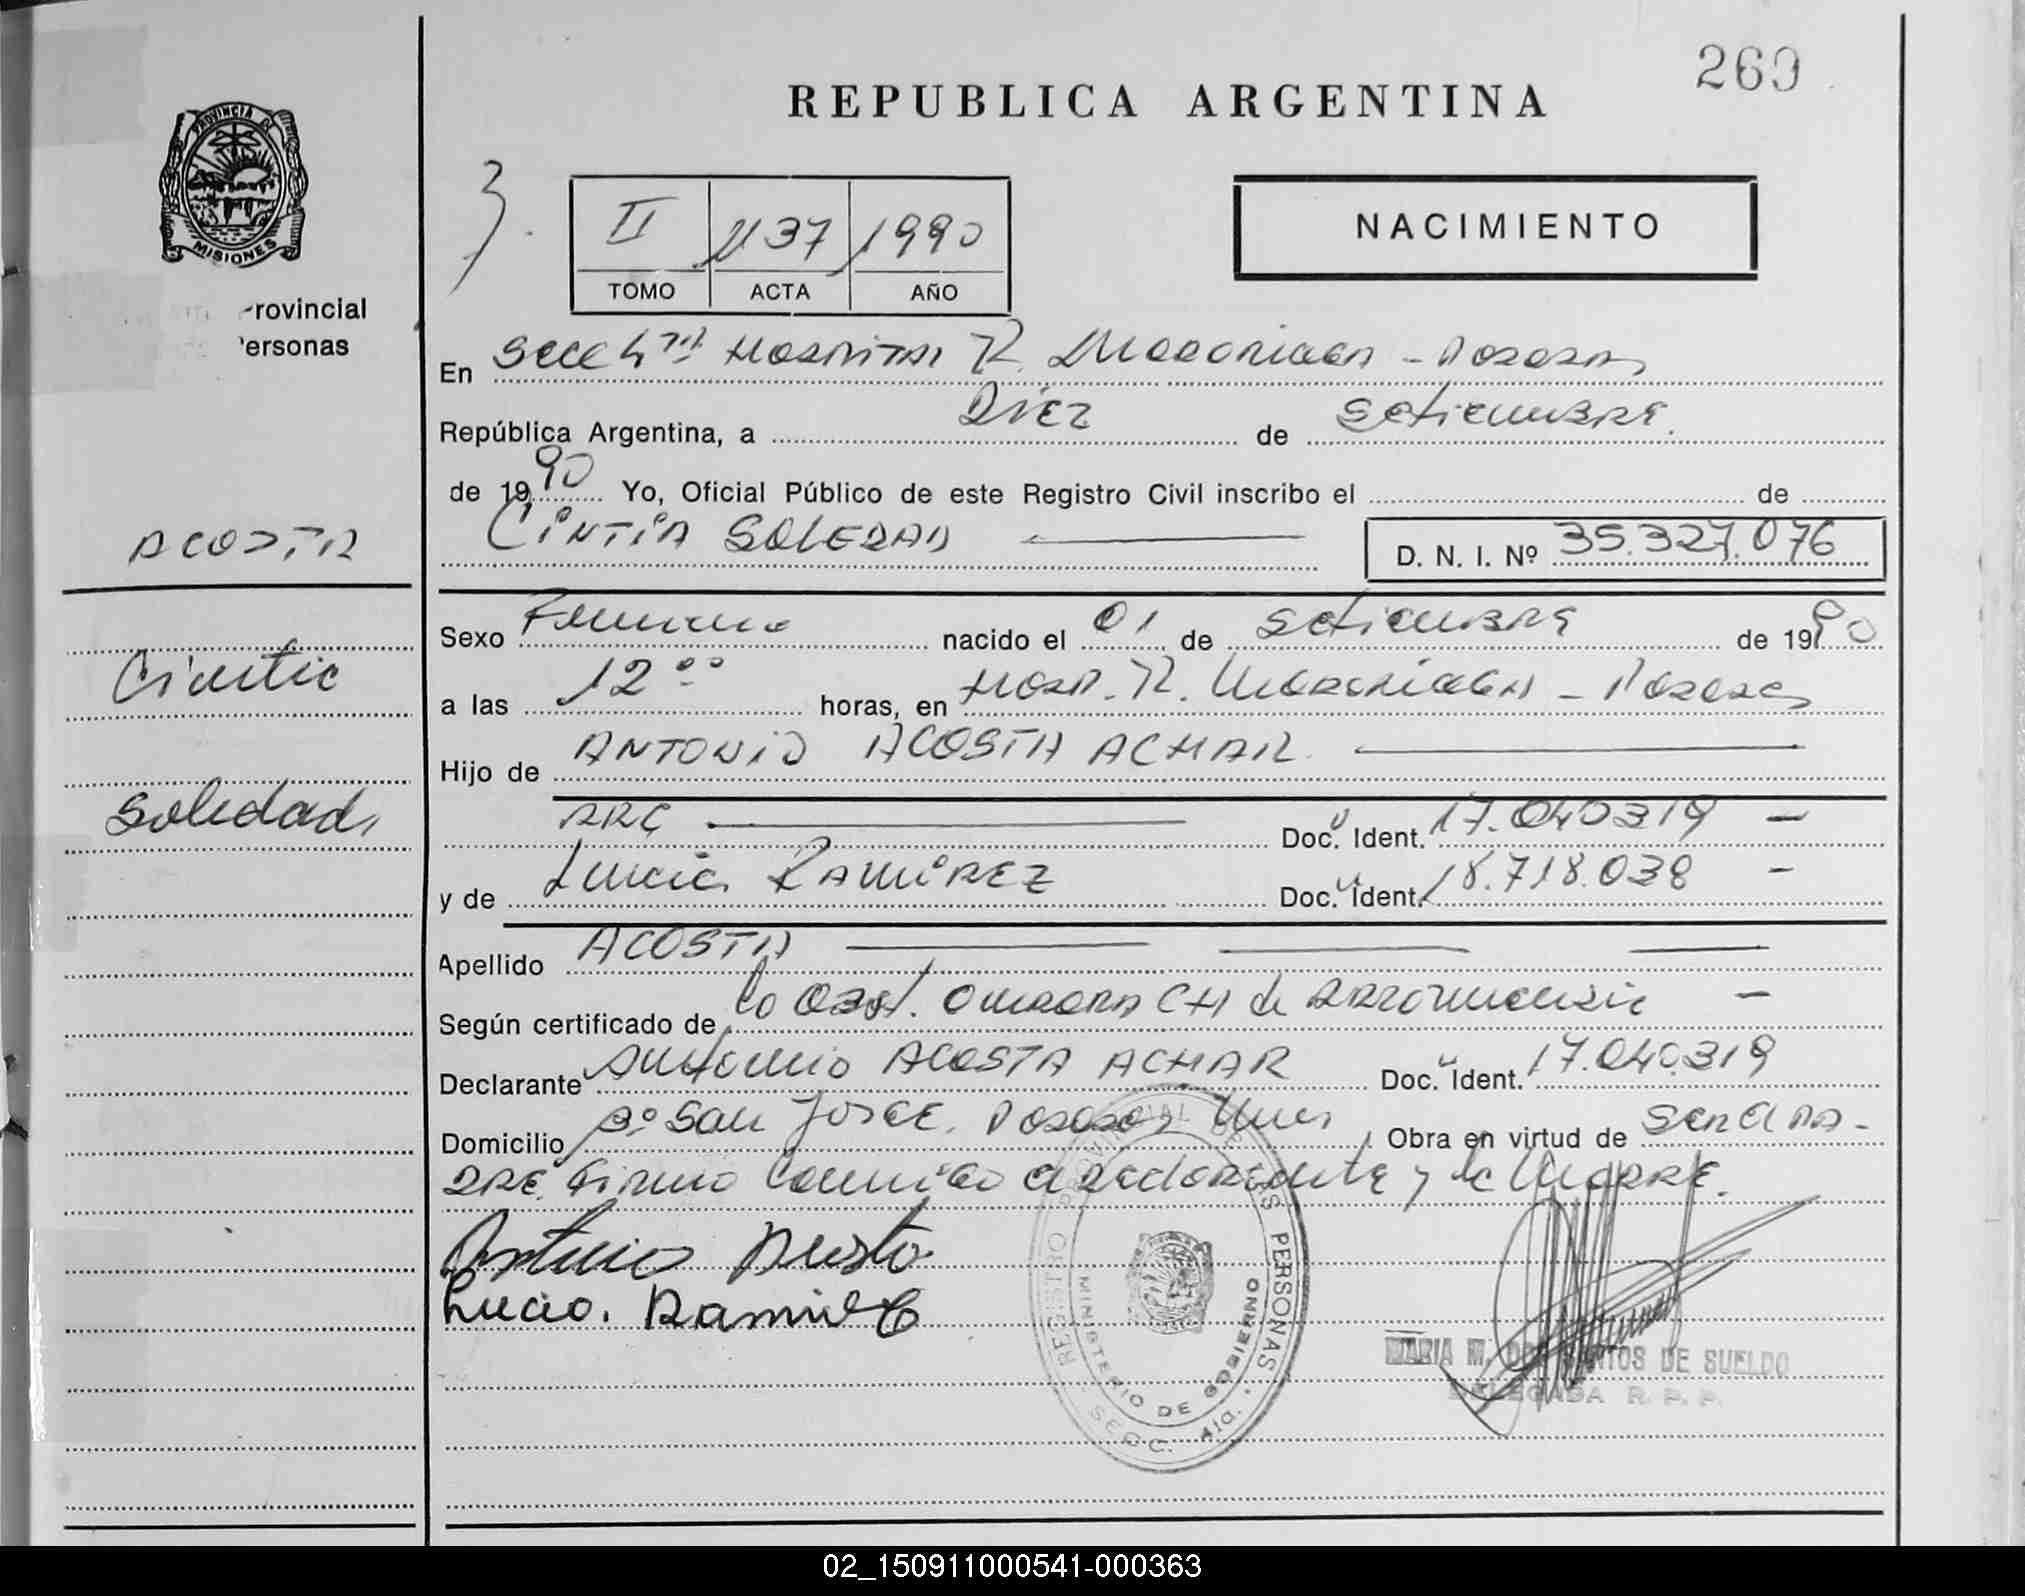 260
REPUBLICA ARGENTINA
PROVINCIA D
MISIONES
rovincial
ersonas
II 1137 1990
TOMO ACTA AÑO
NACIMIENTO
En Secc 4ta Hospital R. Madariaga - Posadas
República Argentina, a Diez de Setiembre.
de 1990 Yo, Oficial Público de este Registro Civil inscribo el de
CINTIA SOLEDAD D. N. I. Nº 35.327.076
ACOSTA
Cintia
Soledad
Sexo Femenino nacido el 01 de Setiembre de 1990
a las 12 oo horas, en Hosp. R. Madariaga - Posadas
Hijo de ANTONIO ACOSTA ACHAR
ARG Doc. Ident. 17.040319 -
y de Lucia RAMIREZ Doc. Ident. 18.718.038 -
Apellido ACOSTA
Según certificado de la Obst. CH de -
Declarante Antonio ACOSTA ACHAR Doc. Ident. 17.040.319
Domicilio Bº San Jorge. Posadas Mnes Obra en virtud de ser el pa-
dre. Firma conmigo el declarante y la Madre.
Antonio
Lucia. Ramirez
REGISTRO PROVINCIAL DE LAS PERSONAS
MINISTERIO DE GOBIERNO
SECC. 4ta.
MARIA M. DOS SANTOS DE SUELDO
DELEGADA R. P. P.
02_150911000541-000363